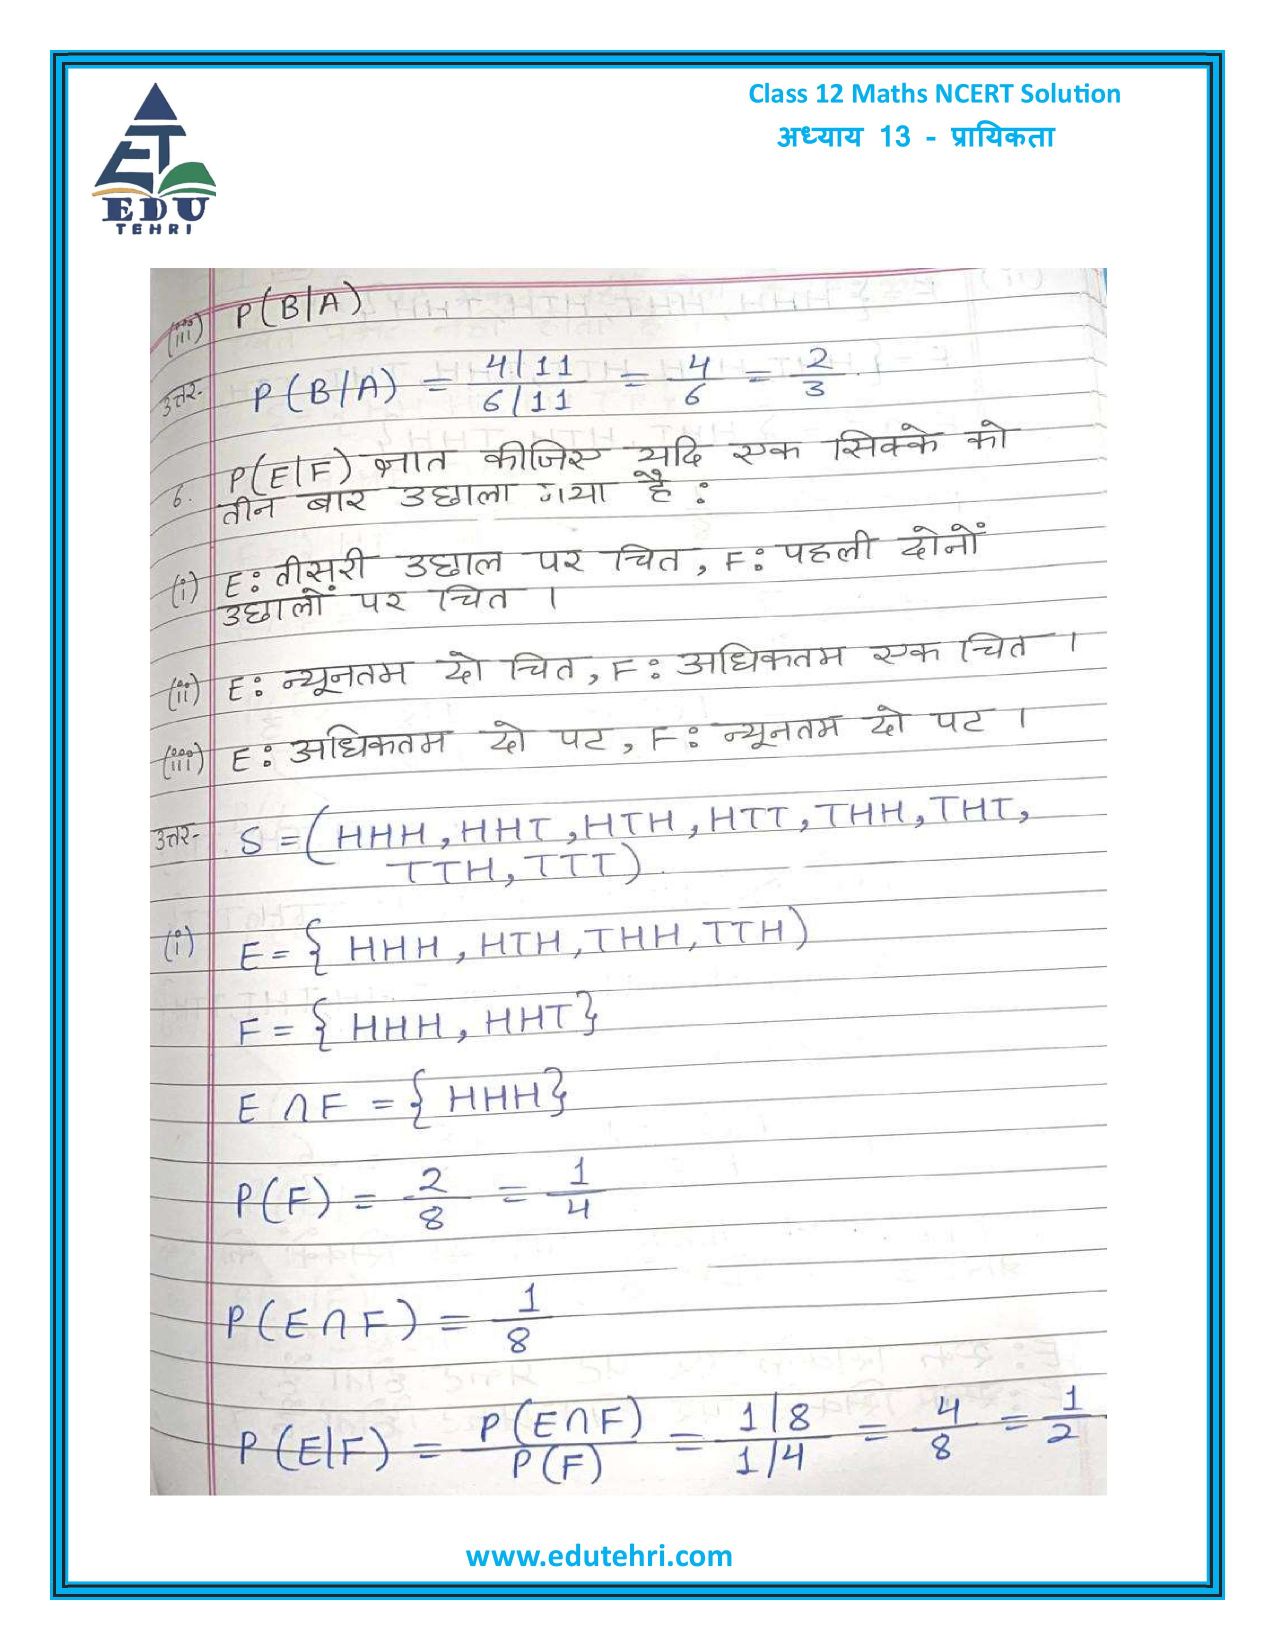 Class 12 Maths NCERT Solution
अध्याय 13 - प्रायिकता
EDU
TEHRI
(iii) P(B|A)
उत्तर- P(B/A) = 4/11 / 6/11 = 4/6 = 2/3
6. P(E|F) ज्ञात कीजिए यदि एक सिक्के को
तीन बार उछाला गया है :
(i) E: तीसरी उछाल पर चित, F: पहली दोनों
उछालों पर चित ।
(ii) E: न्यूनतम दो चित, F: अधिकतम एक चित ।
(iii) E: अधिकतम दो पट, F: न्यूनतम दो पट ।
उत्तर- S = (HHH, HHT, HTH, HTT, THH, THT,
TTH, TTT)
(i) E = { HHH, HTH, THH, TTH)
F = { HHH, HHT}
E ∩ F = { HHH}
P(F) = 2/8 = 1/4
P(E∩F) = 1/8
P(E|F) = P(E∩F)/P(F) = 1/8 / 1/4 = 4/8 = 1/2
www.edutehri.com